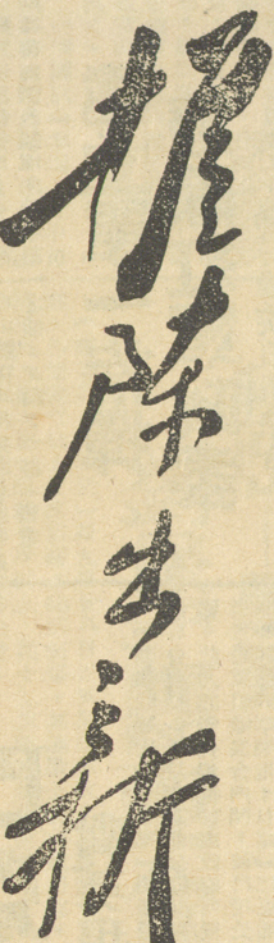 推陈出新